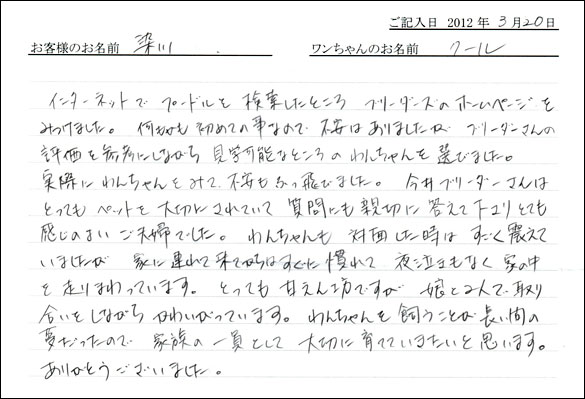 ご記入日 2012 年 3 月 20 日
お客様のお名前 染川 ワンちゃんのお名前 クール
インターネットで プードルを 検索したところ ブリーダーズのホームページを
みつけました。 何もかも 初めての事なので 不安はありましたが ブリーダーさんの
評価を参考にしながら 見学可能なところの わんちゃんを 選びました。
実際に わんちゃんをみて、不安もふっ飛びました。 今井ブリーダーさんは
とっても ペットを 大切に されていて 質問にも 親切に 答えて下さり とても
感じのよい ご夫婦でした。 わんちゃんも 対面した時は すごく 震えて
いましたが 家に 連れて 来てからは すぐに 慣れて 夜泣きもなく 家の中
を 走りまわっています。 とっても 甘えん坊ですが 娘と2人で 取り
合いをしながら かわいがっています。 わんちゃんを 飼うことが 長い間の
夢だったので 家族の 一員として 大切に 育てていきたいと 思います。
ありがとうございました。